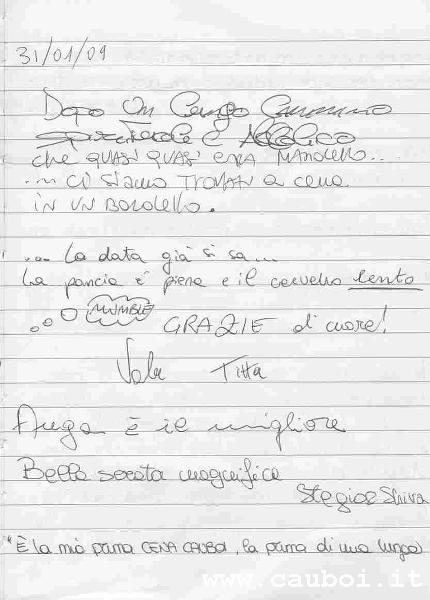 31/01/09
Dopo Un Lungo Cammino
Spirituale e Alcolico
che QUASI QUASI ERA MANDELLO..
... ci siamo TROVATI a cena
IN UN BORDELLO.
... La data già si sa...
La pancia è piena e il cervello lento
MUMBLE
GRAZIE di cuore!
Vale Titta
è il migliore
Bella serata magnifica
*È la mia prima CENA CAUBOI, la prima di una lunga
www.cauboi.it